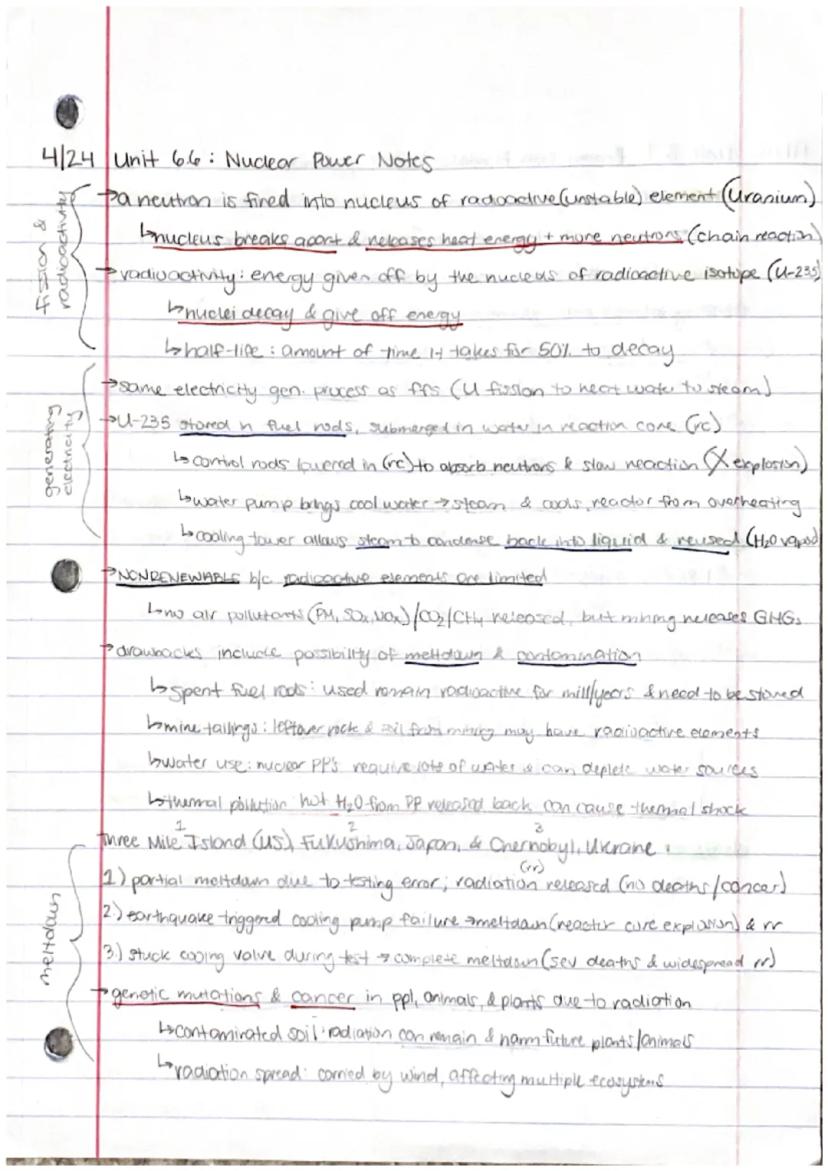 4/24 Unit 6.6: Nuclear Power Notes
fission & radioactivity
→a neutron is fired into nucleus of radioactive(unstable) element (Uranium)
↳nucleus breaks apart & releases heat energy + more neutrons (chain reaction)
→radioactivity: energy given off by the nucleus of radioactive isotope (U-235)
↳nuclei decay & give off energy
↳half-life: amount of time it takes for 50% to decay
generating electricity
→same electricity gen. process as ffs (U fission to heat water to steam)
→U-235 stored in fuel rods, submerged in water in reaction core (rc)
↳control rods lowered in (rc) to absorb neutrons & slow reaction (X explosion)
↳water pump brings cool water → steam & cools reactor from overheating
↳cooling tower allows steam to condense back into liquid & reused (H2O vapor)
→NONRENEWABLE b/c radioactive elements are limited
↳no air pollutants (PM, SOx, NOx)/CO2/CH4 released, but mining releases GHGs
→drawbacks include possibility of meltdown & contamination
↳spent fuel rods: used remain radioactive for mill/years & need to be stored
↳mine tailings: leftover rock & soil from mining may have radioactive elements
↳water use: nuclear PP's require lots of water & can deplete water sources
↳thermal pollution hot H2O from PP released back can cause thermal shock
meltdown
1 2 3
Three Mile Island (US), Fukushima, Japan, & Chernobyl, Ukraine
(rr)
1) partial meltdown due to testing error; radiation released (no deaths/cancer)
2.) earthquake triggered cooling pump failure →meltdown (reactor core explosion) & rr
3.) stuck cooling valve during test → complete meltdown (sev deaths & widespread rr)
→genetic mutations & cancer in ppl, animals, & plants due to radiation
↳contaminated soil: radiation can remain & harm future plants/animals
↳radiation spread: carried by wind, affecting multiple ecosystems